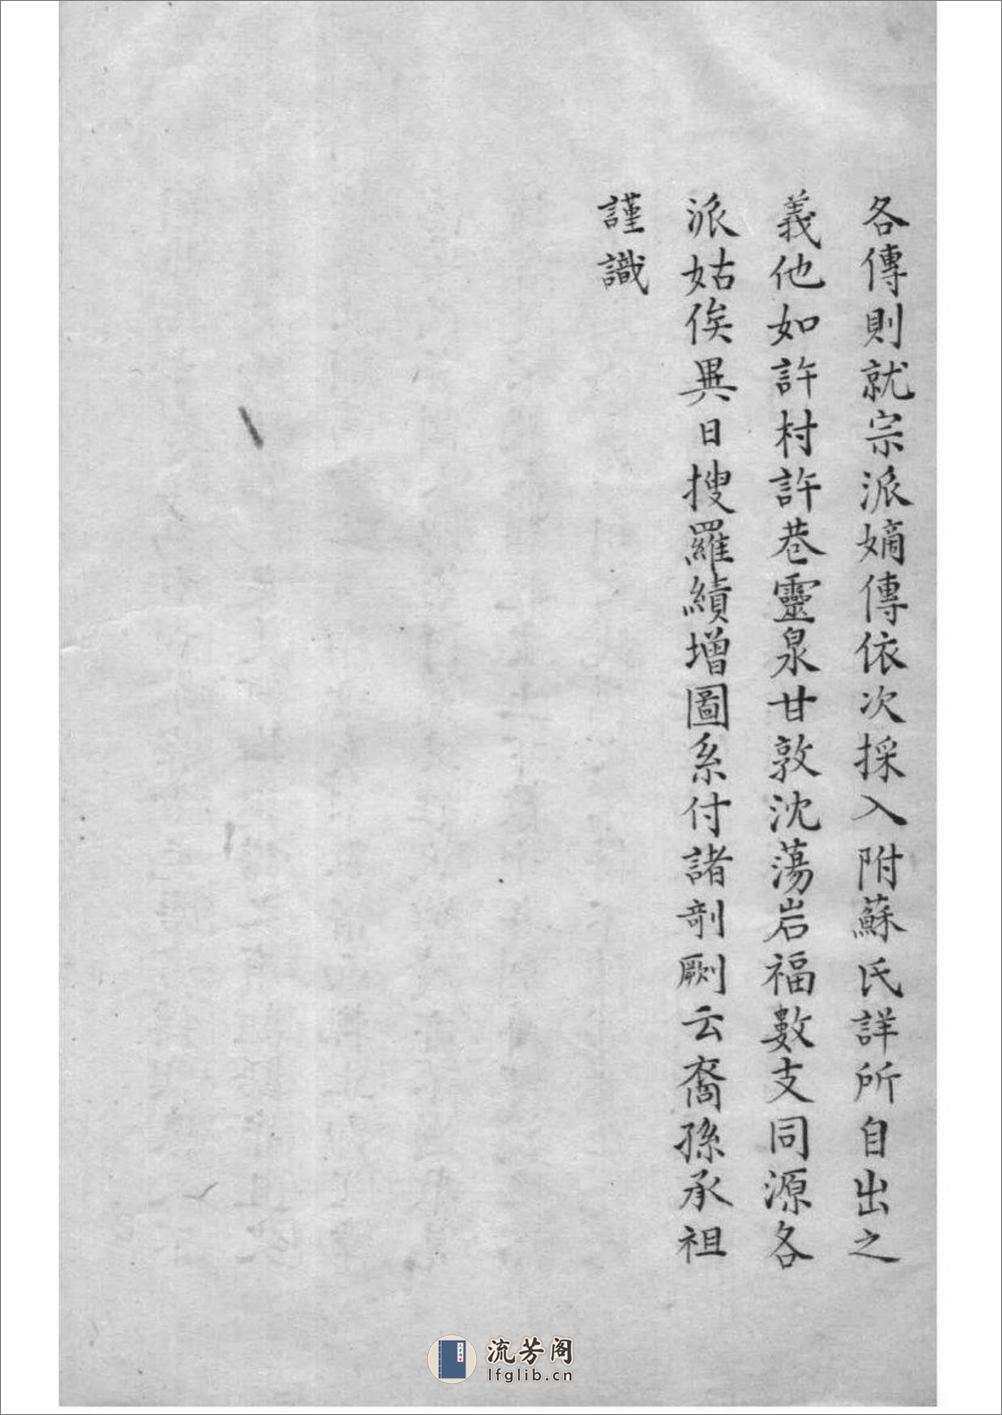 各傳則就宗派嫡傳依次採入附蘇氏詳所自出之
義他如許村許巷靈泉甘敦沈蕩岩福數支同源各
派姑俟異日搜羅續增圖系付諸剞劂云裔孫承祖
謹識
流芳阁
lfglib.cn